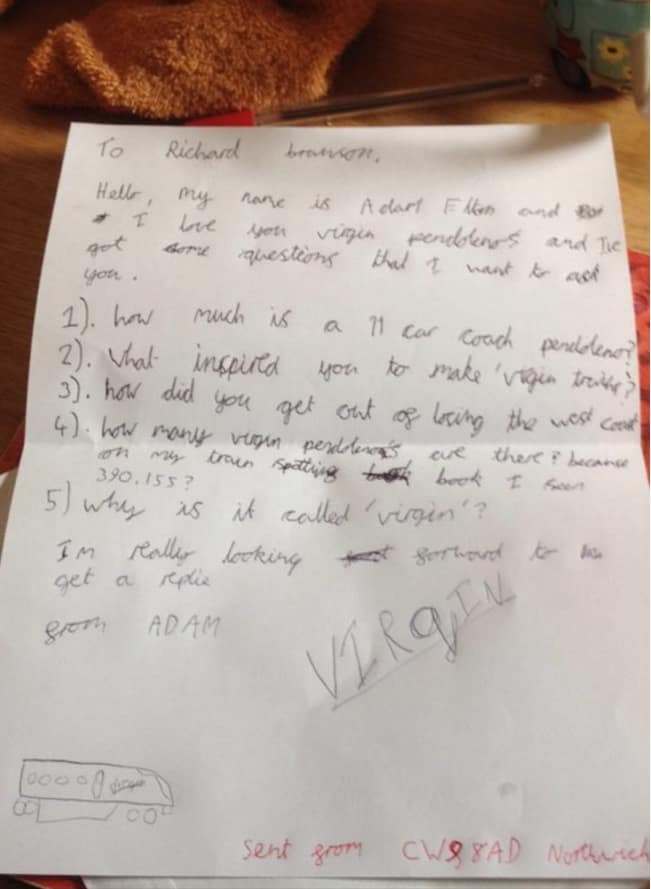 To Richard branson.
Hello, my name is Adam Elton and
I love you virgin pendolenos and I've
got some questions that I want to ask
you.
1). how much is a 11 car coach pendoleno?
2). What inspired you to make 'virgin trains'?
3). how did you get out of losing the west coast
4). how many virgin pendoleno's are there? because
on my train spotting book I seen
390.155?
5) why is it called 'virgin'?
Im really looking forward to
get a replie
from ADAM
VIRgIN
virgin
Sent from CW9 8AD Northwich